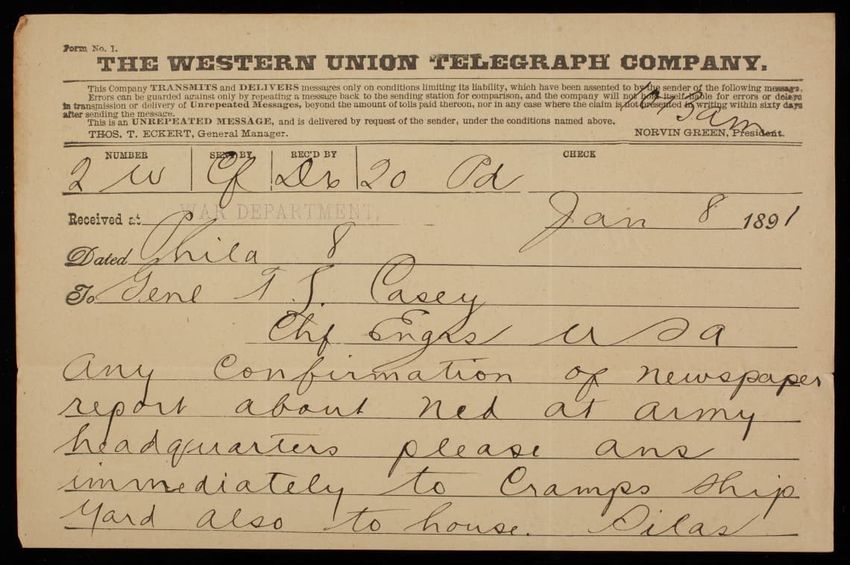 Form No. 1.
THE WESTERN UNION TELEGRAPH COMPANY.
This Company TRANSMITS and DELIVERS messages only on conditions limiting its liability, which have been assented to by the sender of the following message.
Errors can be guarded against only by repeating a message back to the sending station for comparison, and the company will not hold itself liable for errors or delays
in transmission or delivery of Unrepeated Messages, beyond the amount of tolls paid thereon, nor in any case where the claim is not presented in writing within sixty days
after sending the message.
This is an UNREPEATED MESSAGE, and is delivered by request of the sender, under the conditions named above.
THOS. T. ECKERT, General Manager. NORVIN GREEN, President.
NUMBER SENT BY REC'D BY CHECK
2 W Cf Ds 20 Pd
Received at WAR DEPARTMENT, Jan 8 1891
Dated Phila 8
To Genl T. L. Casey
Chf Engrs U S A
Any confirmation of newspaper
report about Ned at army
headquarters please ans
immediately to Cramps Ship
Yard also to house. Silas